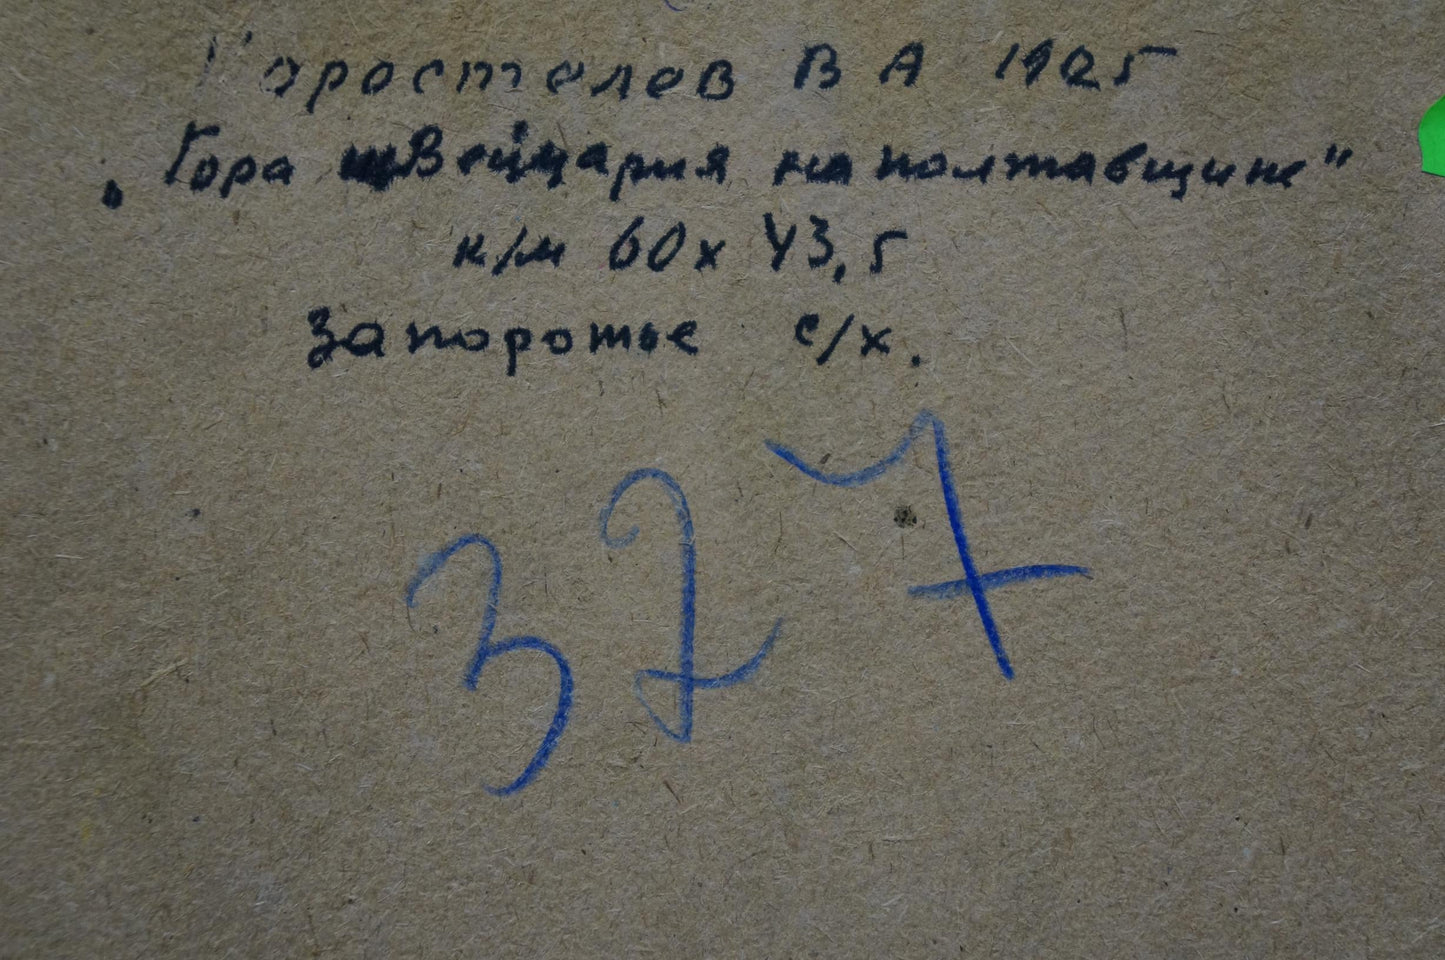 Коростелев В А 1925
„Гора швейцария на полтавщине"
к/м 60х43,5
Запорожье с/х.
327